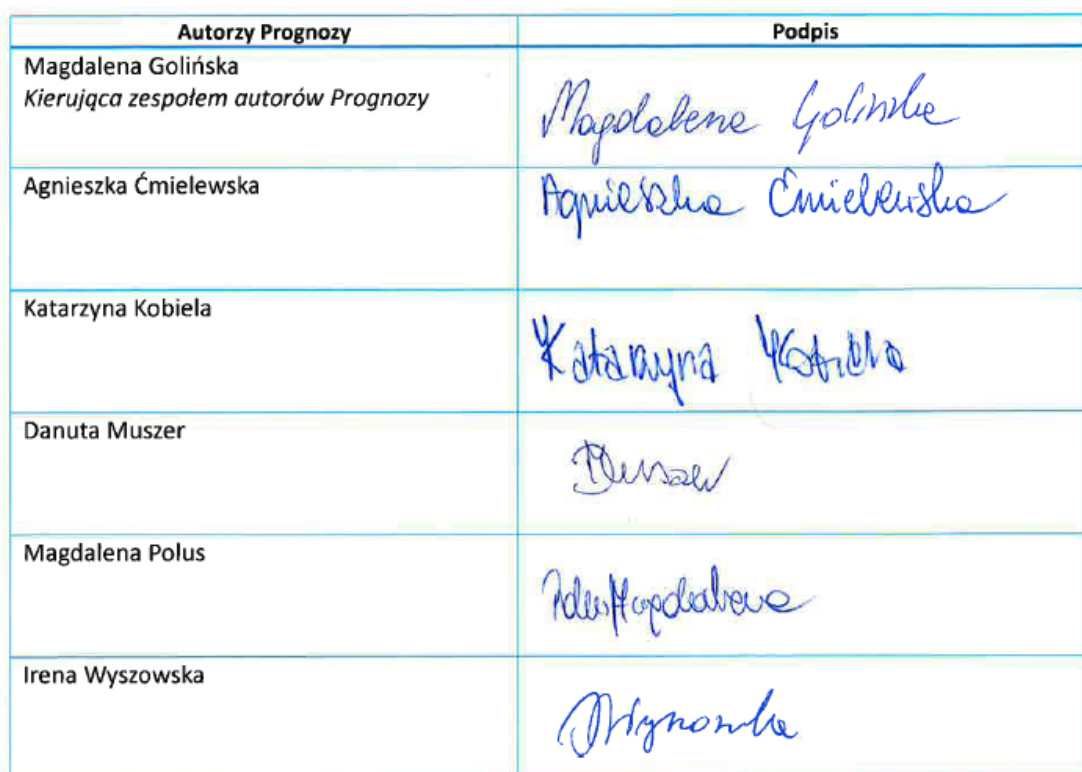 Autorzy Prognozy Podpis
Magdalena Golińska
Kierująca zespołem autorów Prognozy
Magdalena Golińska
Agnieszka Ćmielewska Agnieszka Ćmielewska
Katarzyna Kobiela
Katarzyna Kobiela
Danuta Muszer
DMuszer
Magdalena Polus
Polus Magdalena
Irena Wyszowska